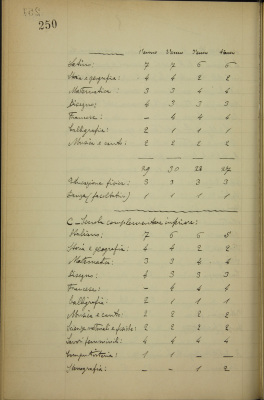 250
1°anno 2°anno 3°anno 4°anno
Latino: 7 7 6 6
Storia e geografia: 4 4 2 2
Matematica: 3 3 4 4
Disegno: 4 3 3 3
Francese: – 4 4 4
Calligrafia: 2 1 1 1
Musica e canto: 2 2 2 2
29 30 28 27
Educazione fisica: 3 3 3 3
Danza (facoltativa) 1 1 1 1
C – Scuola complementare inferiore:
Italiano: 7 6 6 5
Storia e geografia: 4 4 2 2
Matematica: 3 3 4 4
Disegno: 4 3 3 3
Francese: – 4 4 4
Calligrafia: 2 1 1 1
Musica e canto: 2 2 2 2
Scienze naturali e fisiche: 2 2 2 2
Lavori femminili: 4 4 4 4
Computisteria: 1 1 – –
Stenografia: – – 1 2